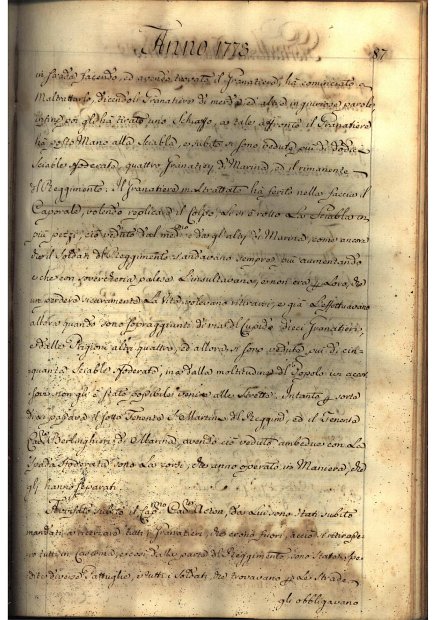 Anno 1773
87
in strada facendo, ed avendo trovato il Granatiere, ha cominciato a
Maltrattarlo, dicendoli Granatiero di merda ed altre ingiuriose parole
infine poi gl'ha tirato uno Schiaffo, a tale affronto il Granatiere
ha posto Mano alla Sciabla, e subito si sono vedute più di dodici
Sciable sfoderate, quattro Granatieri di Marina, ed il rimanente
del Reggimento: Il Granatiere maltrattato ha ferito nella faccia il
Caporale, volendo replicare il Colpo, se li è rotta la Sciabla in
più pezzi, ciò veduto dal med.mo e da gl'altri di Marina, come ancora
che il Soldati del Reggimento s'andavano sempre più aumentando
e che con soverchieria palese l'insultavano, e non era p loro, che
un perdere sicuramente la Vita volevano ritirarsi, e già l'effettuavano
allora quando sono sopraggiunti di mal di Cupido dieci Granatieri,
e dalle Prigioni altri quattro, ed allora si sono vedute più di cin-
quanta Sciable sfoderate, ma dalla moltitudine del Popolo un
non gl'è stato possibile venire alle Strette, intanto p sorte
di là passava il sotto Tenente S. Martin del Reggim.to, ed il Tenente
Cav.re Berlinghieri di Marina, avendo ciò veduto ambedue con la
Spada sfoderata sono là corsi, che anno operato in Maniera, che
gli hanno separati.
Avvisato subito il Cap.no Cav.re Acton, da lui sono stati subito
mandati a ricercare tutti i Granatieri, che erono fuori, acciò si ritirasse-
ro tutti in Caserma, e così dalla parte del Reggimento sono state spe-
dite diverse Pattuglie, e tutti i Soldati, che trovavano p le Strade
gli obbligavano